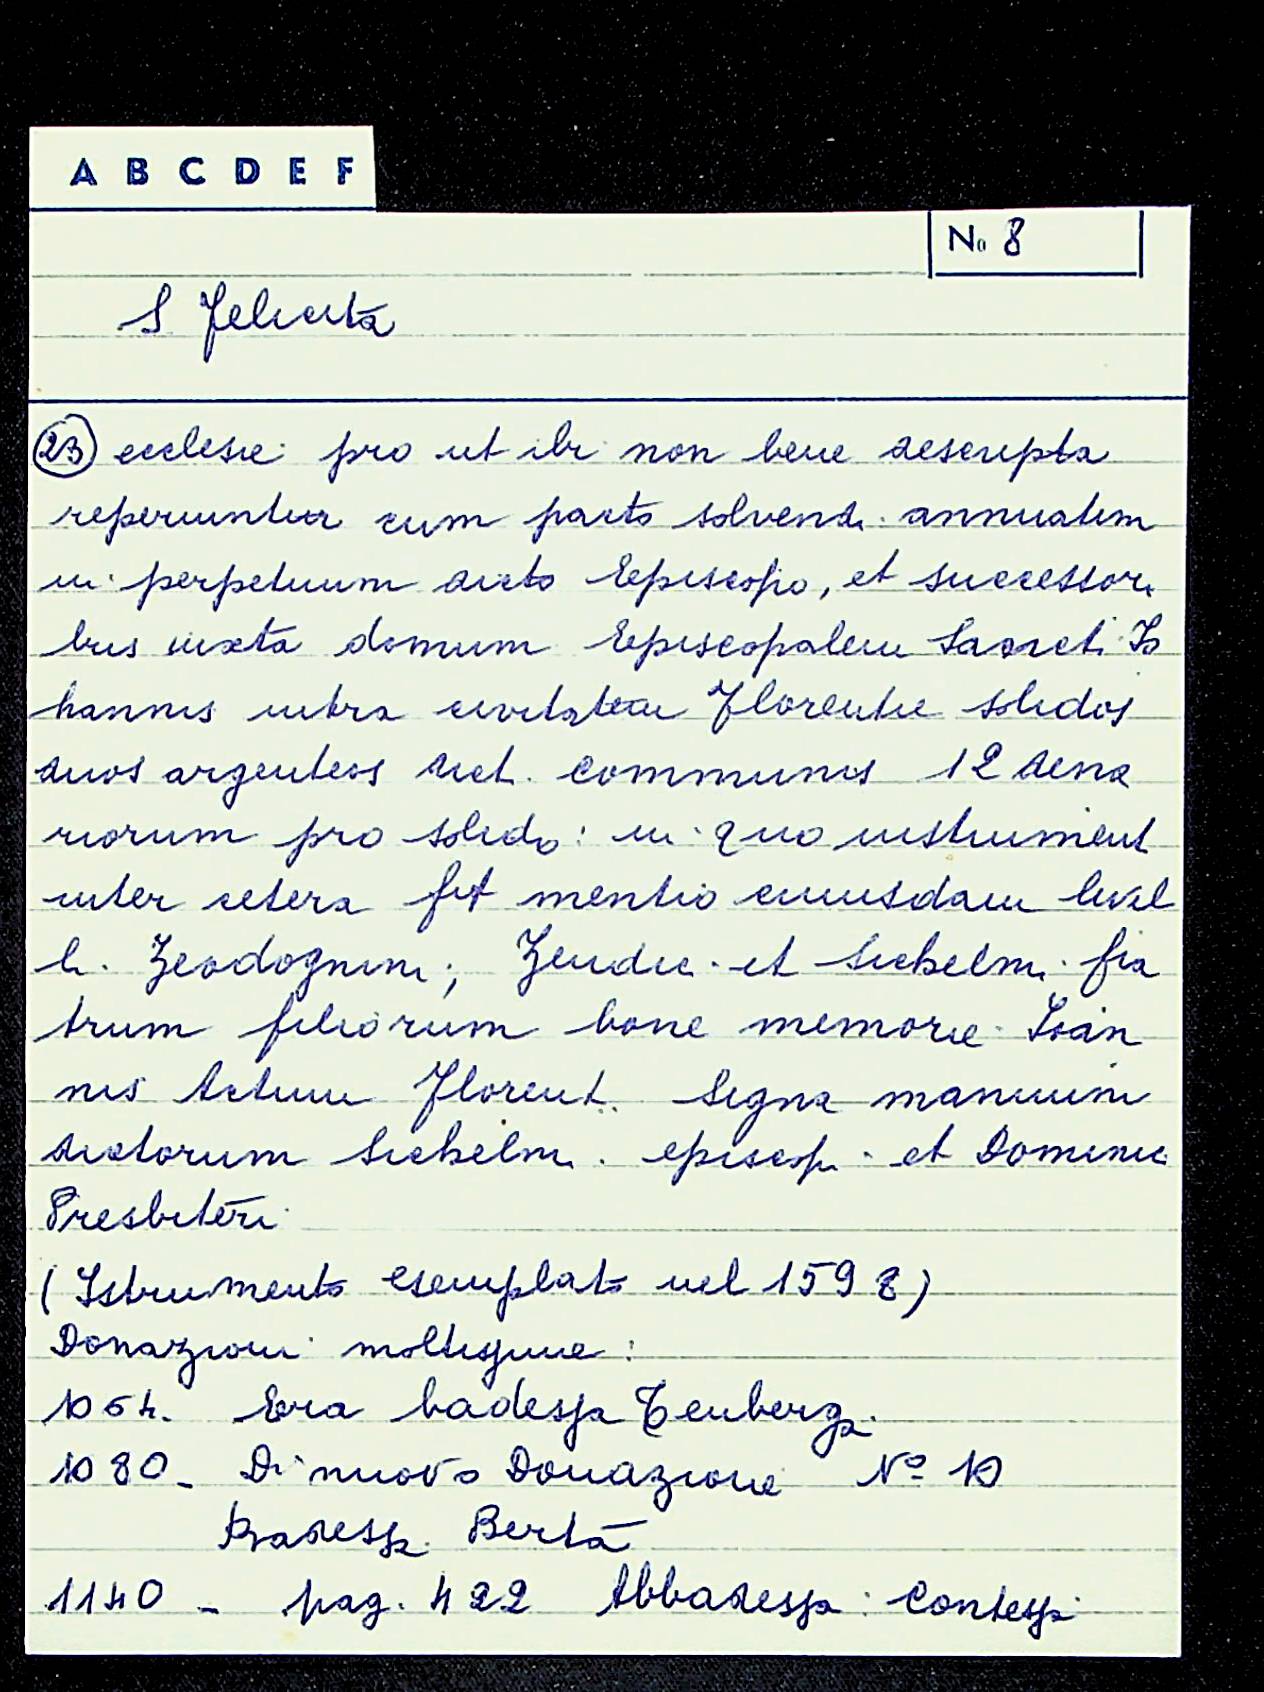 A B C D E F
No 8
S Felicita
23 ecclesie pro ut ibi non bene descripta
reperiuntur cum pacto solvendi annuatim
in perpetuum dicto Episcopo, et successori
bus iuxta domum Episcopalem Sancti Io
hannis intra civitatem Florentie solidos
duos argenteos dict. communis 12 dena
riorum pro solido: in quo instrument
inter cetera fit mentio cuiusdam livel
li. Teodognini; Teudic et Sichelmi fra
trum filiorum bone memorie Ioan
nis Actum Florent. Signa manuum
dictorum Sichelmi. episcopi et Dominici
Presbiteri
(Istrumento esemplato nel 1598)
Donazioni moltissime:
1064. Era badessa Teuberga.
1080_ Di nuovo Donazione No 10
Badessa. Berta
1140_ pag. 422 Abbadessa: Contessa